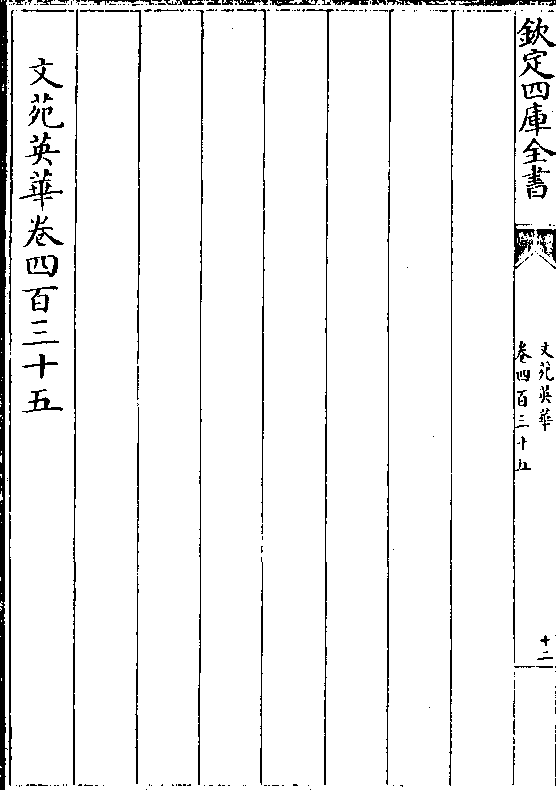 欽定四庫全書
文苑英華
卷四百三十五
十二
文苑英華卷四百三十五